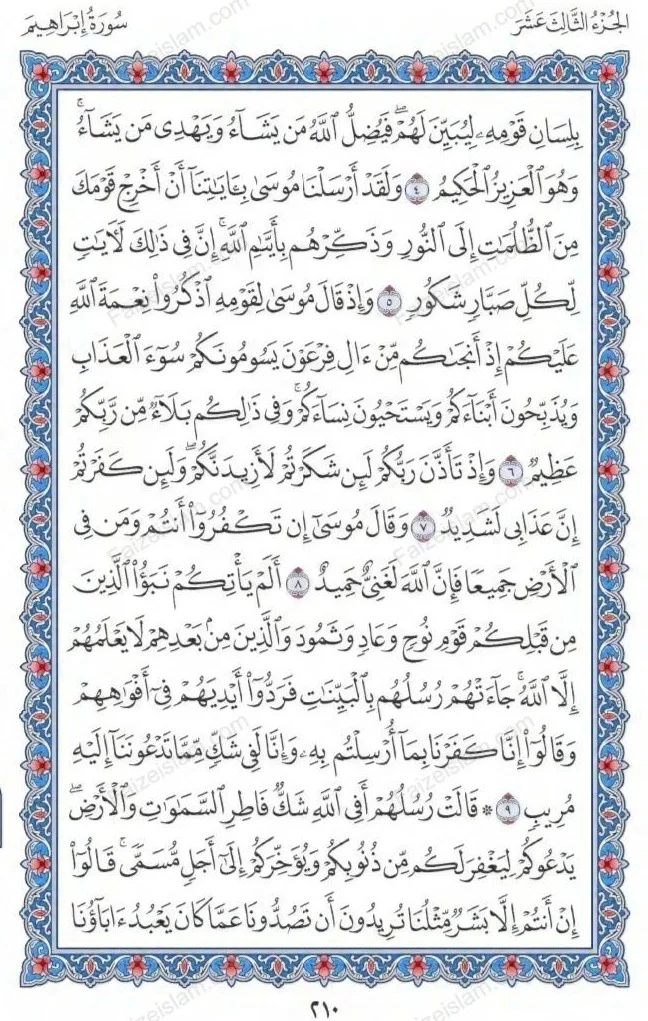 الجُزْءُ الثَّالِثَ عَشَرَ
سُورَةُ إِبْرَاهِيمَ
بِلِسَانِ قَوْمِهِۦ لِيُبَيِّنَ لَهُمْۖ فَيُضِلُّ ٱللَّهُ مَن يَشَآءُ وَيَهْدِى مَن يَشَآءُۚ
وَهُوَ ٱلْعَزِيزُ ٱلْحَكِيمُ ٤ وَلَقَدْ أَرْسَلْنَا مُوسَىٰ بِـَٔايَٰتِنَآ أَنْ أَخْرِجْ قَوْمَكَ
مِنَ ٱلظُّلُمَٰتِ إِلَى ٱلنُّورِ وَذَكِّرْهُم بِأَيَّىٰمِ ٱللَّهِۚ إِنَّ فِى ذَٰلِكَ لَـَٔايَٰتٍ
لِّكُلِّ صَبَّارٍ شَكُورٍ ٥ وَإِذْ قَالَ مُوسَىٰ لِقَوْمِهِ ٱذْكُرُوا۟ نِعْمَةَ ٱللَّهِ
عَلَيْكُمْ إِذْ أَنجَىٰكُم مِّنْ ءَالِ فِرْعَوْنَ يَسُومُونَكُمْ سُوٓءَ ٱلْعَذَابِ
وَيُذَبِّحُونَ أَبْنَآءَكُمْ وَيَسْتَحْيُونَ نِسَآءَكُمْۚ وَفِى ذَٰلِكُم بَلَآءٌ مِّن رَّبِّكُمْ
عَظِيمٌ ٦ وَإِذْ تَأَذَّنَ رَبُّكُمْ لَئِن شَكَرْتُمْ لَأَزِيدَنَّكُمْۖ وَلَئِن كَفَرْتُمْ
إِنَّ عَذَابِى لَشَدِيدٌ ٧ وَقَالَ مُوسَىٰٓ إِن تَكْفُرُوٓا۟ أَنتُمْ وَمَن فِى
ٱلْأَرْضِ جَمِيعًا فَإِنَّ ٱللَّهَ لَغَنِىٌّ حَمِيدٌ ٨ أَلَمْ يَأْتِكُمْ نَبَؤُا۟ ٱلَّذِينَ
مِن قَبْلِكُمْ قَوْمِ نُوحٍ وَعَادٍ وَثَمُودَ وَٱلَّذِينَ مِنۢ بَعْدِهِمْ لَا يَعْلَمُهُمْ
إِلَّا ٱللَّهُۚ جَآءَتْهُمْ رُسُلُهُم بِٱلْبَيِّنَٰتِ فَرَدُّوٓا۟ أَيْدِيَهُمْ فِىٓ أَفْوَٰهِهِمْ
وَقَالُوٓا۟ إِنَّا كَفَرْنَا بِمَآ أُرْسِلْتُم بِهِۦ وَإِنَّا لَفِى شَكٍّ مِّمَّا تَدْعُونَنَآ إِلَيْهِ
مُرِيبٍ ٩ ۞ قَالَتْ رُسُلُهُمْ أَفِى ٱللَّهِ شَكٌّ فَاطِرِ ٱلسَّمَٰوَٰتِ وَٱلْأَرْضِۖ
يَدْعُوكُمْ لِيَغْفِرَ لَكُم مِّن ذُنُوبِكُمْ وَيُؤَخِّرَكُمْ إِلَىٰٓ أَجَلٍ مُّسَمًّىۚ قَالُوٓا۟
إِنْ أَنتُمْ إِلَّا بَشَرٌ مِّثْلُنَا تُرِيدُونَ أَن تَصُدُّونَا عَمَّا كَانَ يَعْبُدُ ءَابَآؤُنَا
٢١٠
Faizeislam.com